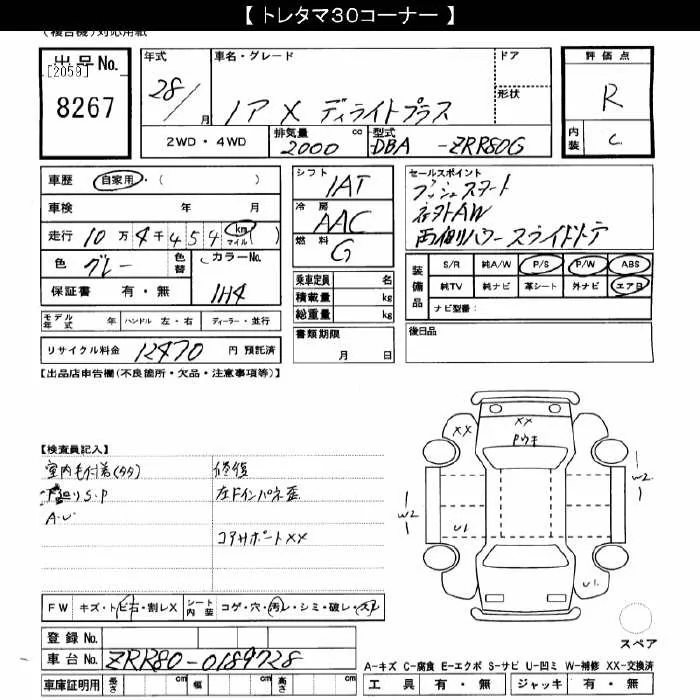 【 トレタマ30コーナー 】
(複合機)対応用紙
出品No.
[2059]
8267
年式
28/
月
車名・グレード
ノア X ディライトプラス
ドア
形状
評価点
R
内装
C
2WD・4WD
排気量
2000
cc
型式
DBA -ZRR80G
車歴
自家用・( )
車検 年 月
走行 10万4千454 km マイル ( )
色 グレー
色替
カラーNo.
1H4
保証書 有・無
シフト
IAT
冷房
AAC
燃料
G
乗車定員 名
積載量 kg
総重量 kg
書類期限
月 日
セールスポイント
プッシュスタート
社外AW
両側パワースライドドア
装備品
S/R 純A/W P/S P/W ABS
純TV 純ナビ 革シート 外ナビ エアB
ナビ型番:
後日品
モデル年式 年 ハンドル 左・右 ディーラー・並行
リサイクル料金 12470 円 預託済
【出品店申告欄(不良箇所・欠品・注意事項等)】
【検査員記入】
室内毛付着(タタ)
下廻りS・P
A・U
修復
左Fインパネ歪
コアサポートXX
XX
XX
W2
U1
W2
U1
スペア
FW キズ・トビ石・割レX シート内装 コゲ・穴・汚レ・シミ・破レ・スレ
登録No.
車台No. ZRR80-0189728
車庫証明用 長さ cm 幅 cm 高さ cm
A-キズ C-腐食 E-エクボ S-サビ U-凹ミ W-補修 XX-交換済
工具 有・無 ジャッキ 有・無